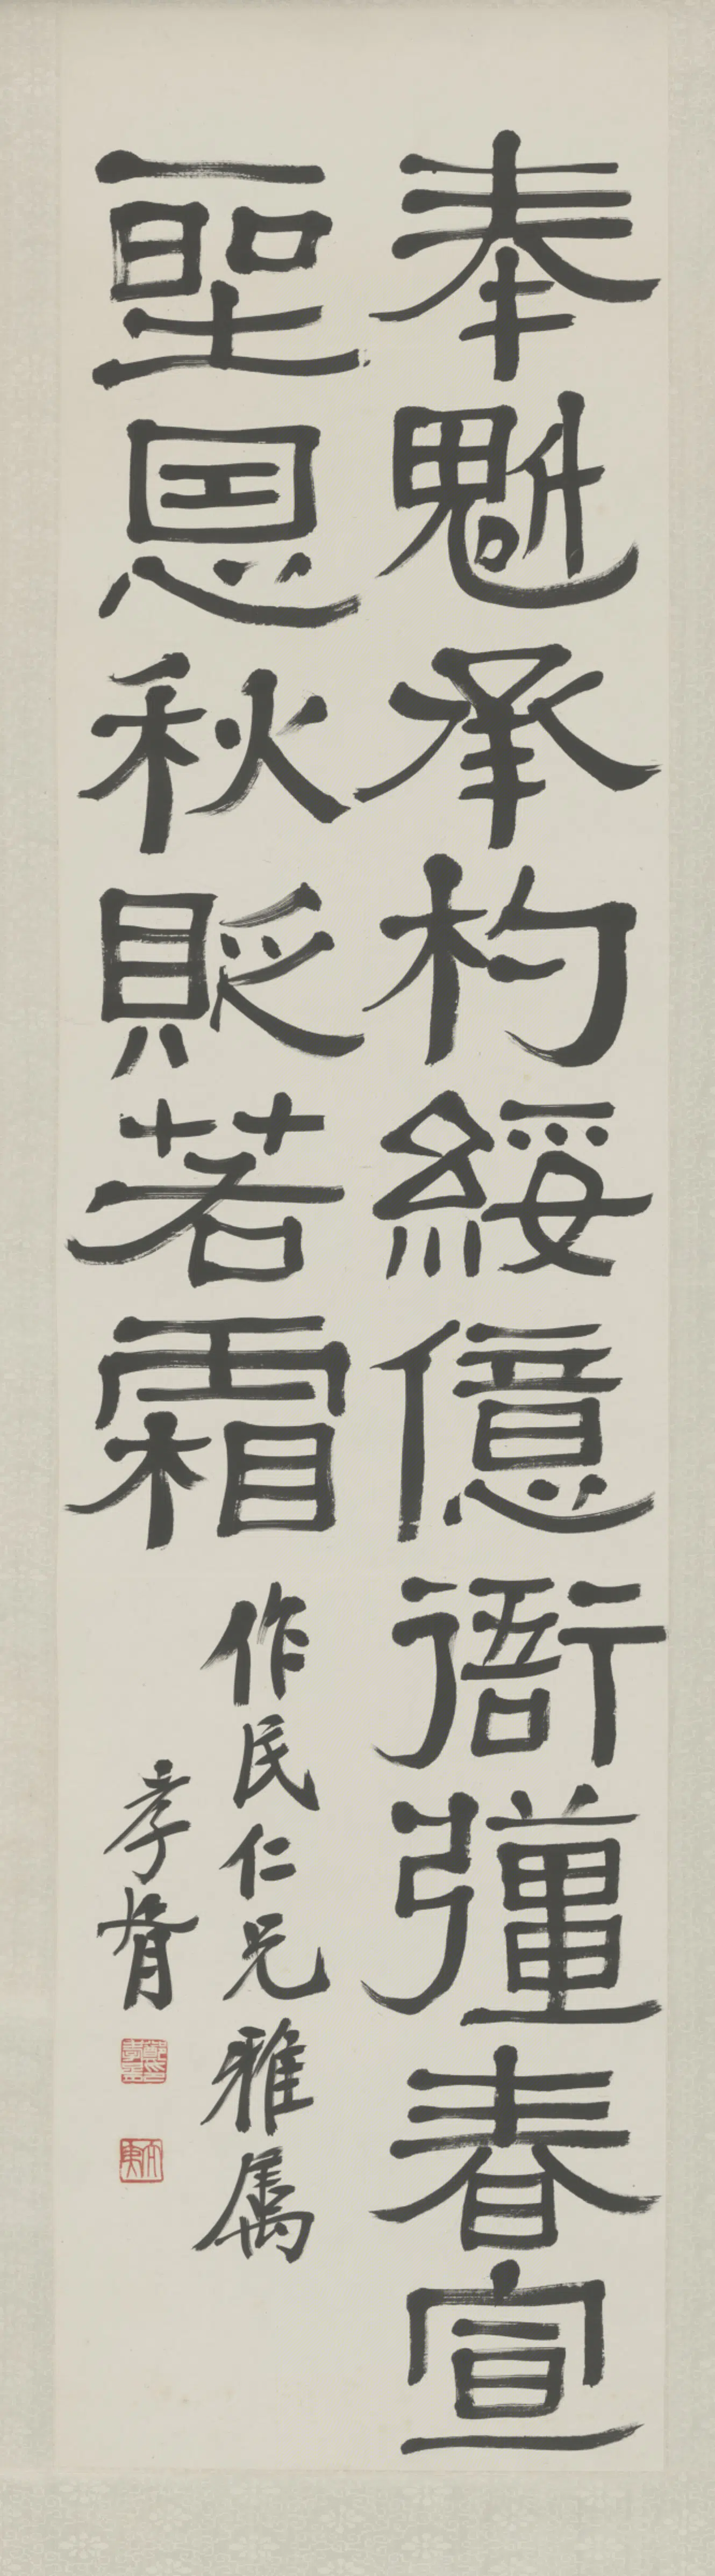 奉魁承杓綏億衙彊春宣
聖恩秋貶若霜
作民仁兄雅属
孝胥